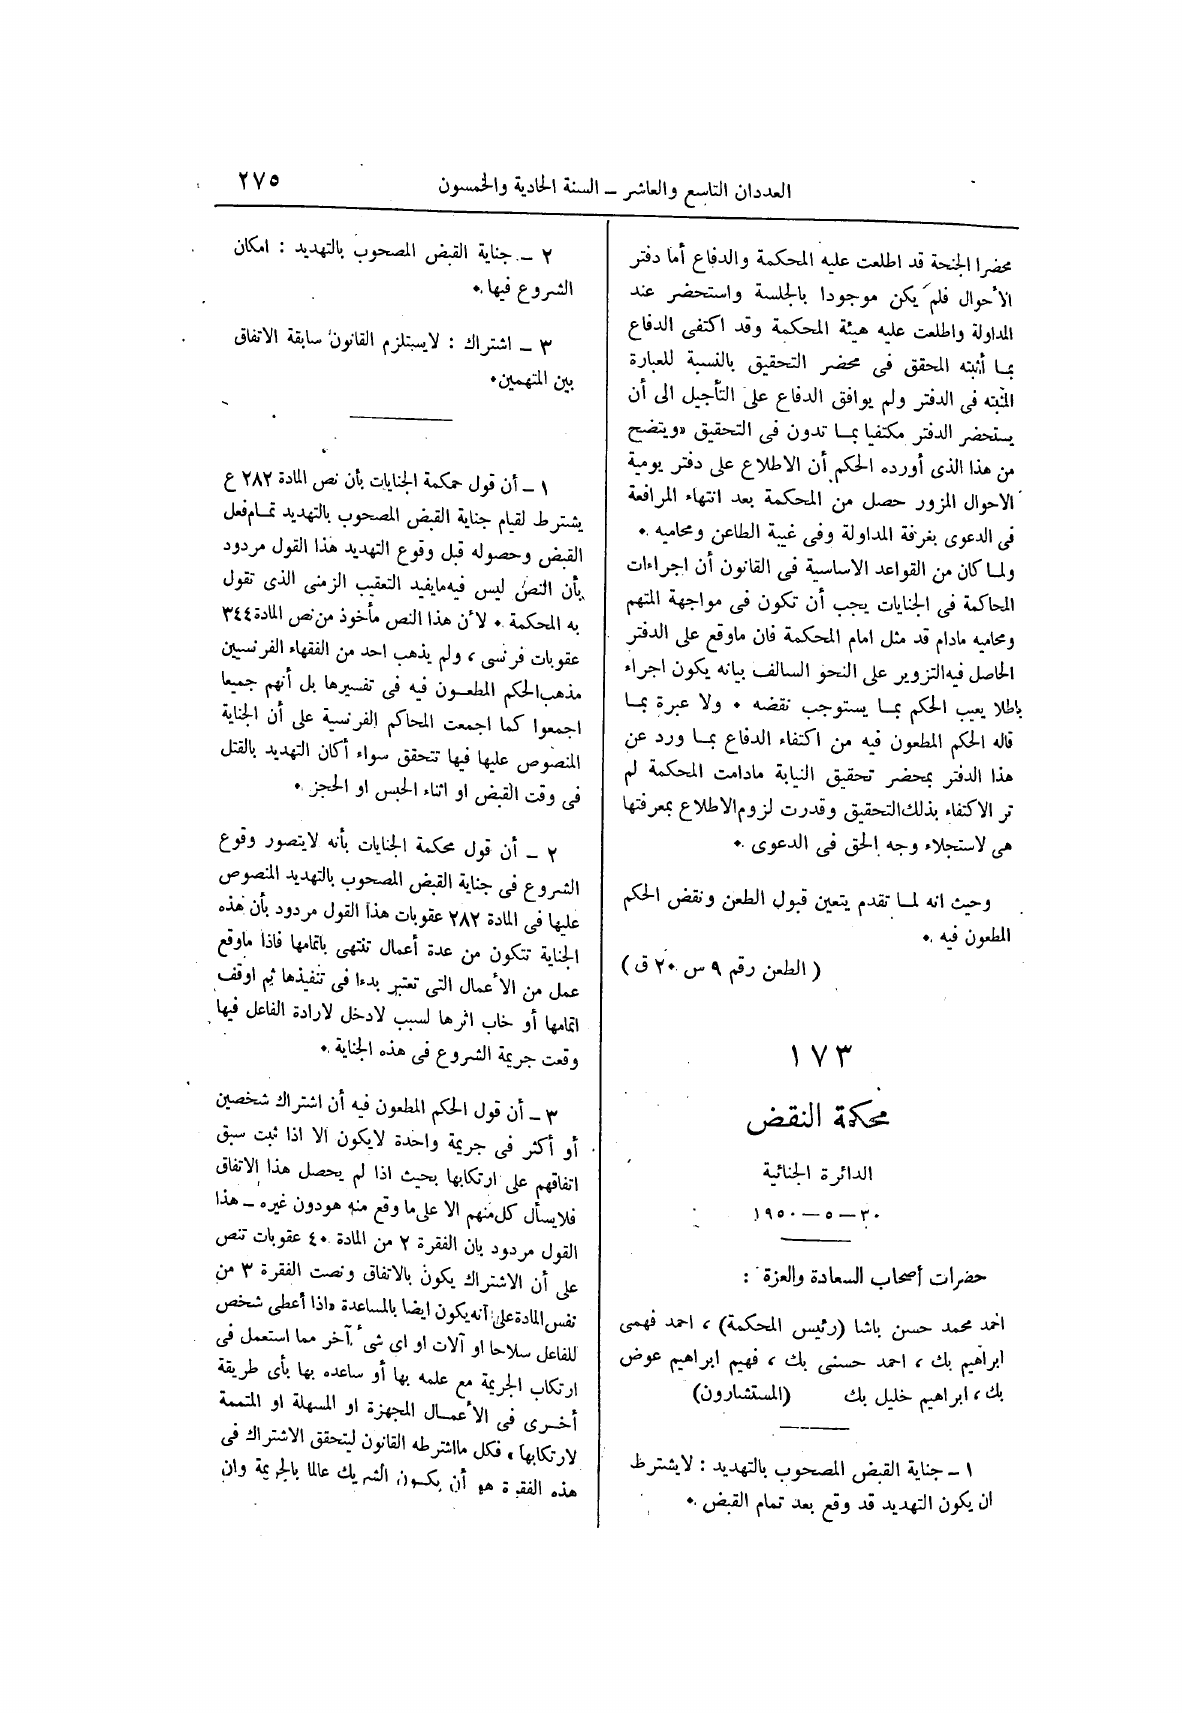 العددان التاسع والعاشر – السنة الحادية والخمسون
٢٧٥
محضرا الجنحة قد اطلعت عليه المحكمة والدفاع أما دفتر
الأحوال فلم يكن موجودا بالجلسة واستحضر عند
المداولة واطلعت عليه هيئة المحكمة وقد اكتفى الدفاع
بما أثبته المحقق فى محضر التحقيق بالنسبة للعبارة
المثبته فى الدفتر ولم يوافق الدفاع على التأجيل الى أن
يستحضر الدفتر مكتفيا بما تدون فى التحقيق «ويتضح
من هذا الذى أورده الحكم أن الاطلاع على دفتر يومية
الاحوال المزور حصل من المحكمة بعد انتهاء المرافعة
فى الدعوى بغرفة المداولة وفى غيبة الطاعن ومحاميه .
ولما كان من القواعد الاساسية فى القانون أن اجراءات
المحاكمة فى الجنايات يجب أن تكون فى مواجهة المتهم
ومحاميه مادام قد مثل امام المحكمة فان ماوقع على الدفتر
الحاصل فيه التزوير على النحو السالف بيانه يكون اجراء
باطلا يعيب الحكم بما يستوجب نقضه . ولا عبرة بما
قاله الحكم المطعون فيه من اكتفاء الدفاع بما ورد عن
هذا الدفتر بمحضر تحقيق النيابة مادامت المحكمة لم
تر الاكتفاء بذلك التحقيق وقدرت لزوم الاطلاع بمعرفتها
هى لاستجلاء وجه الحق فى الدعوى .
وحيث انه لما تقدم يتعين قبول الطعن ونقض الحكم
المطعون فيه .
( الطعن رقم ٩ س ٢٠ ق )
١٧٣
محكمة النقض
الدائرة الجنائية
٣٠ – ٥ – ١٩٥٠
حضرات أصحاب السعادة والعزة :
احمد محمد حسن باشا (رئيس المحكمة) ، احمد فهمى
ابراهيم بك ، احمد حسنى بك ، فهيم ابراهيم عوض
بك ، ابراهيم خليل بك (المستشارون)
١ – جناية القبض المصحوب بالتهديد : لايشترط
ان يكون التهديد قد وقع بعد تمام القبض .
٢ – جناية القبض المصحوب بالتهديد : امكان
الشروع فيها .
٣ – اشتراك : لايستلزم القانون سابقة الاتفاق
بين المتهمين .
١ – أن قول محكمة الجنايات بأن نص المادة ٢٨٢ ع
يشترط لقيام جناية القبض المصحوب بالتهديد تمام فعل
القبض وحصوله قبل وقوع التهديد هذا القول مردود
بأن النص ليس فيه مايفيد التعقيب الزمنى الذى تقول
به المحكمة . لأن هذا النص مأخوذ من نص المادة ٣٤٤
عقوبات فرنسى ، ولم يذهب احد من الفقهاء الفرنسيين
مذهب الحكم المطعون فيه فى تفسيرها بل أنهم جميعا
اجمعوا كما اجمعت المحاكم الفرنسية على أن الجناية
المنصوص عليها فيها تتحقق سواء أكان التهديد بالقتل
فى وقت القبض او اثناء الحبس او الحجز .
٢ – أن قول محكمة الجنايات بأنه لايتصور وقوع
الشروع فى جناية القبض المصحوب بالتهديد المنصوص
عليها فى المادة ٢٨٢ عقوبات هذا القول مردود بأن هذه
الجناية تتكون من عدة أعمال تنتهى باتمامها فاذا ماوقع
عمل من الأعمال التى تعتبر بدءا فى تنفيذها ثم اوقف
اتمامها أو خاب اثرها لسبب لادخل لارادة الفاعل فيها
وقعت جريمة الشروع فى هذه الجناية .
٣ – أن قول الحكم المطعون فيه أن اشتراك شخصين
أو أكثر فى جريمة واحدة لايكون الا اذا ثبت سبق
اتفاقهم على ارتكابها بحيث اذا لم يحصل هذا الاتفاق
فلايسأل كل منهم الا على ما وقع منه هودون غيره – هذا
القول مردود بان الفقرة ٢ من المادة ٤٠ عقوبات تنص
على أن الاشتراك يكون بالاتفاق ونصت الفقرة ٣ من
نفس المادة على أنه يكون ايضا بالمساعدة «اذا أعطى شخص
للفاعل سلاحا او آلات او اى شىء آخر مما استعمل فى
ارتكاب الجريمة مع علمه بها أو ساعده بها بأى طريقة
أخرى فى الأعمال المجهزة او المسهلة او المتممة
لارتكابها ، فكل مااشترطه القانون ليتحقق الاشتراك فى
هذه الفقرة هو أن يكون الشريك عالما بالجريمة وان